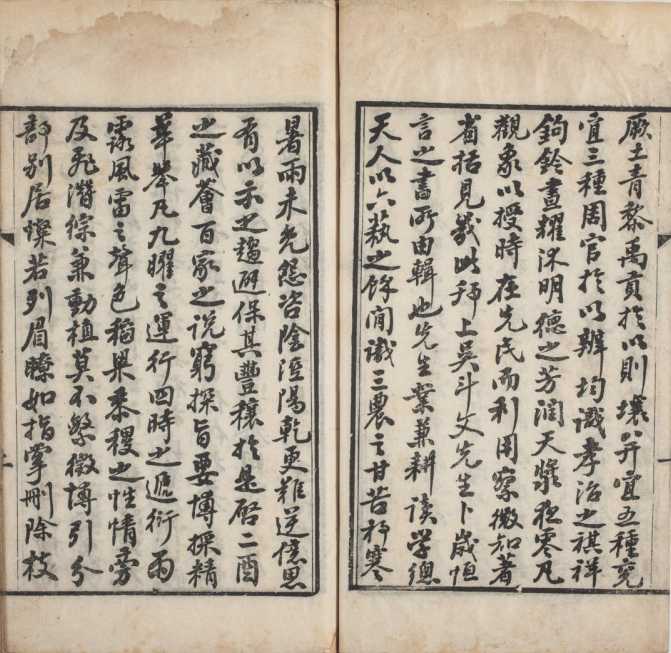 厥土青黎禹貢於以則壤幷宜五種兗
宜三種周官於以辨均識孝治之祺祥
鉤鈐晝耀沐明德之芳潤天漿夜零凡
觀象以授時在先民而利用察微知著
省括見幾此拜上吳斗文先生卜歲恒
言之書所由輯也先生業兼耕讀学總
天人以六藝之餘閒識三農之甘苦祁寒
暑雨未免怨咨陰淫陽乾更難逆億思
有以示之趨避保其豐穰於是啓二酉
之藏薈百家之说窮探旨要博採精
華舉凡九曜之運行四時之遞衍雨
露風雷之聲色稻粱黍稷之性情旁
及飛潛綜兼動植莫不繁徵博引分
部別居燦若列眉瞭如指掌刪除枝